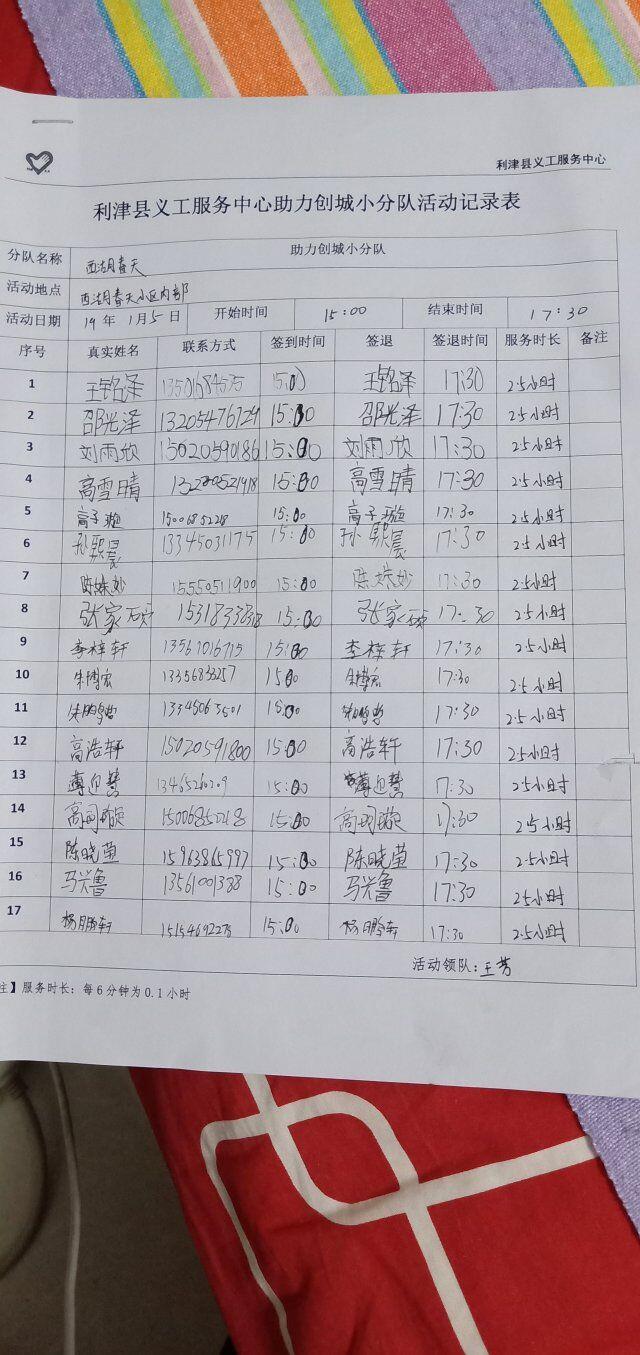 利津县义工服务中心
利津县义工服务中心助力创城小分队活动记录表
分队名称 西湖春天 助力创城小分队
活动地点 西湖春天小区内部
活动日期 19 年 1月5 日 开始时间 15:00 结束时间 17:30
序号 真实姓名 联系方式 签到时间 签退 签退时间 服务时长 备注
1 王铭泽 15:00 王铭泽 17:30 2.5小时
2 邵光泽 13205476729 15:00 邵光泽 17:30 2.5小时
3 刘雨欣 15020590186 15:00 刘雨欣 17:30 2.5小时
4 高雪晴 15:00 高雪晴 17:30 2.5小时
5 高子璇 15:00 高子璇 17:30 2.5小时
6 13345031175 15:00 17:30 2.5小时
7 陈姝妙 15550511900 15:00 陈姝妙 17:30 2.5小时
8 张家硕 15:00 张家硕 17:30 2.5小时
9 李梓轩 13561016715 15:00 李梓轩 17:30 2.5小时
10 朱博宏 13356833257 15:00 17:30 2.5小时
11 13345063501 15:00 17:30 2.5小时
12 高浩轩 15020591800 15:00 高浩轩 17:30 2.5小时
13 薄迎慧 15:00 薄迎慧 17:30 2.5小时
14 15:00 17:30 2.5小时
15 陈晓莹 15963865997 15:00 陈晓莹 17:30 2.5小时
16 马兴鲁 15:00 马兴鲁 17:30 2.5小时
17 杨鹏轩 15154692275 15:00 杨鹏轩 17:30 2.5小时
活动领队：王芳
注】服务时长：每6分钟为0.1小时